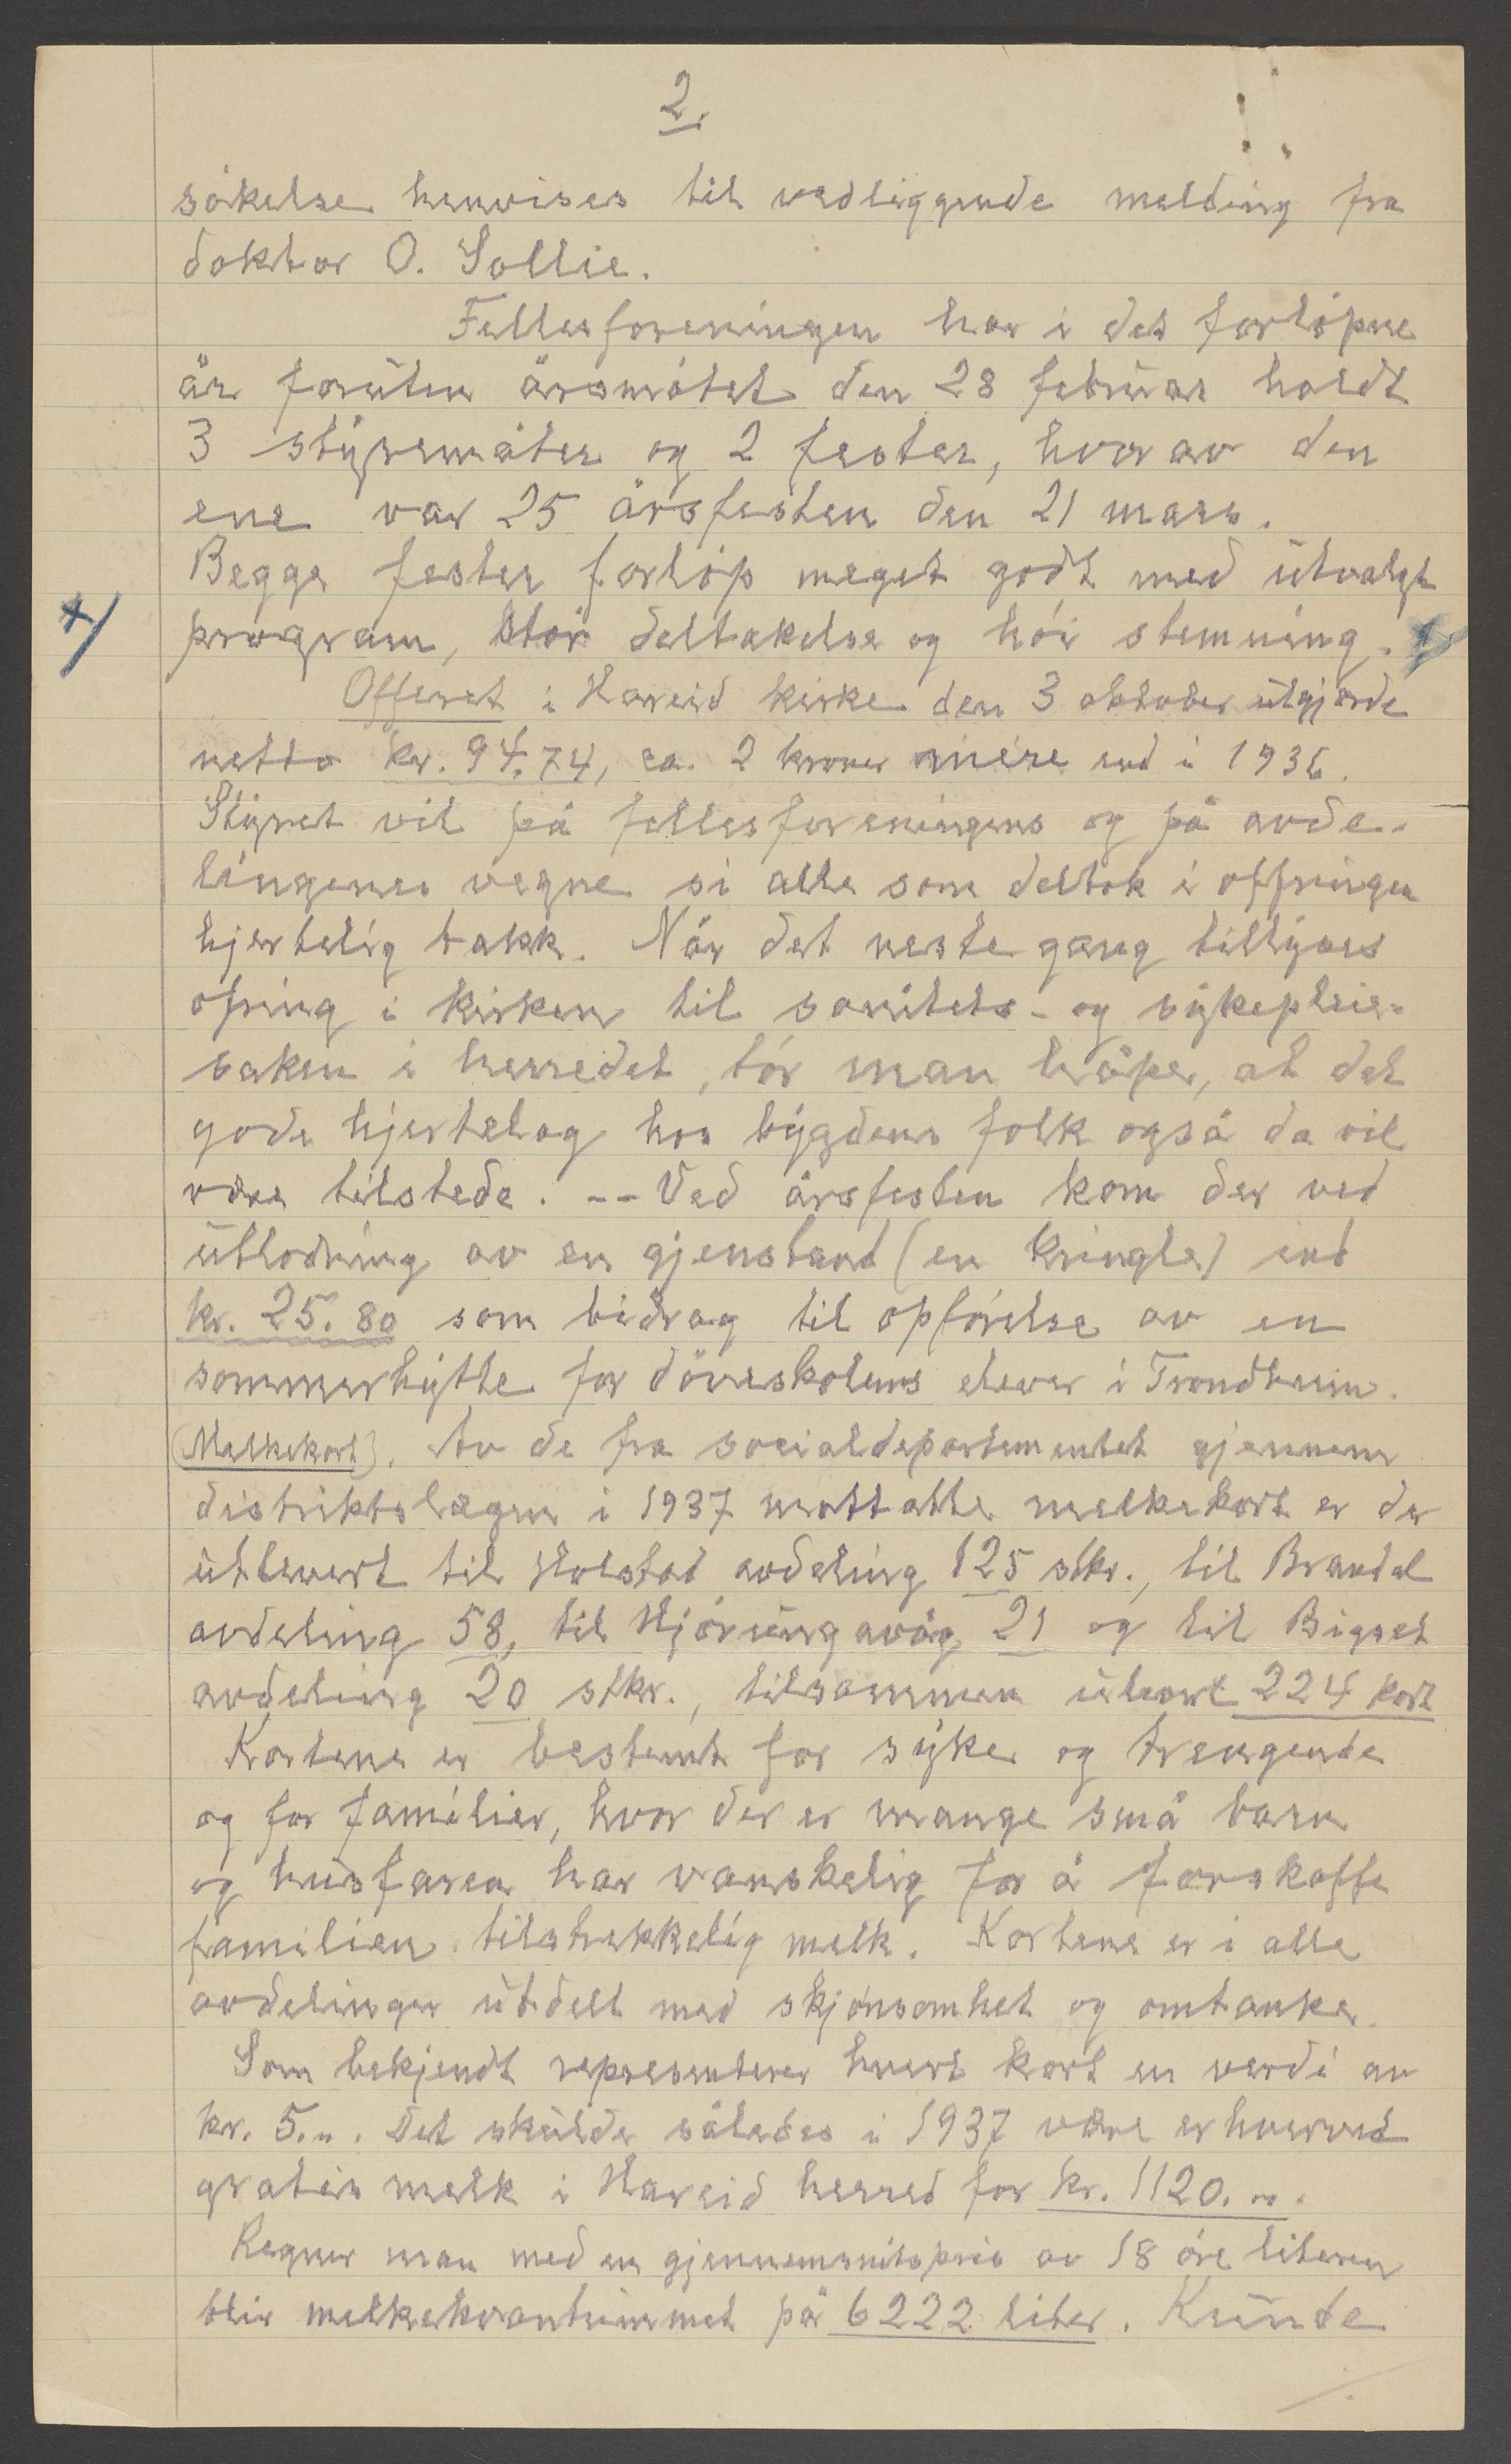 2.
søkelse henvises til vedliggende melding fra
doktor O. Sollie.
Fellesforeningen har i det forløpne
år foruten årsmøtet den 28 februar holdt
3 styremøter og 2 fester, hvorav den
ene var 25 årsfesten den 21 mars.
Begge fester forløp meget godt med utvalgt
x/ program, stor deltakelse og høi stemning. x/
Offeret i Hareid kirke den 3 oktober utgjorde
netto kr. 94.74, ca. 2 kroner mere end i 1936.
Styret vil på fellesforeningens og på avde-
lingenes vegne si alle som deltok i offringen
hjertelig takk. Når det neste gang tillyses
ofring i kirken til sanitets- og sykepleie-
saken i herredet, tør man håpe, at det
gode hjertelag hos bygdens folk også da vil
være tilstede. -- Ved årsfesten kom der ved
utlodning av en gjenstand (en kringle) ind
kr. 25.80 som bidrag til opførelse av en
sommerhytte for døveskolens elever i Trondheim.
(Melkekort). Av de fra socialdepartementet gjennem
distriktslægen i 1937 mottatte melkekort er der
utlevert til Holstad avdeling 125 stkr., til Brandal
avdeling 58, til Hjørungavåg 21 og til Bigset
avdeling 20 stkr., tilsammen utlevert 224 kort
Kortene er bestemt for syke og trengende
og for familier, hvor der er mange små barn
og husfaren har vanskelig for å forskaffe
familien tilstrekkelig melk. Kortene er i alle
avdelinger utdelt med skjønsomhet og omtanke.
Som bekjendt representerer hvert kort en verdi av
kr. 5.„. Det skulde således i 1937 være erhvervet
gratis melk i Hareid herred for kr. 1120.„.
Regner man med en gjennemsnitspris av 18 øre literen
blir melkekvantummet på 6222 liter. Kunde